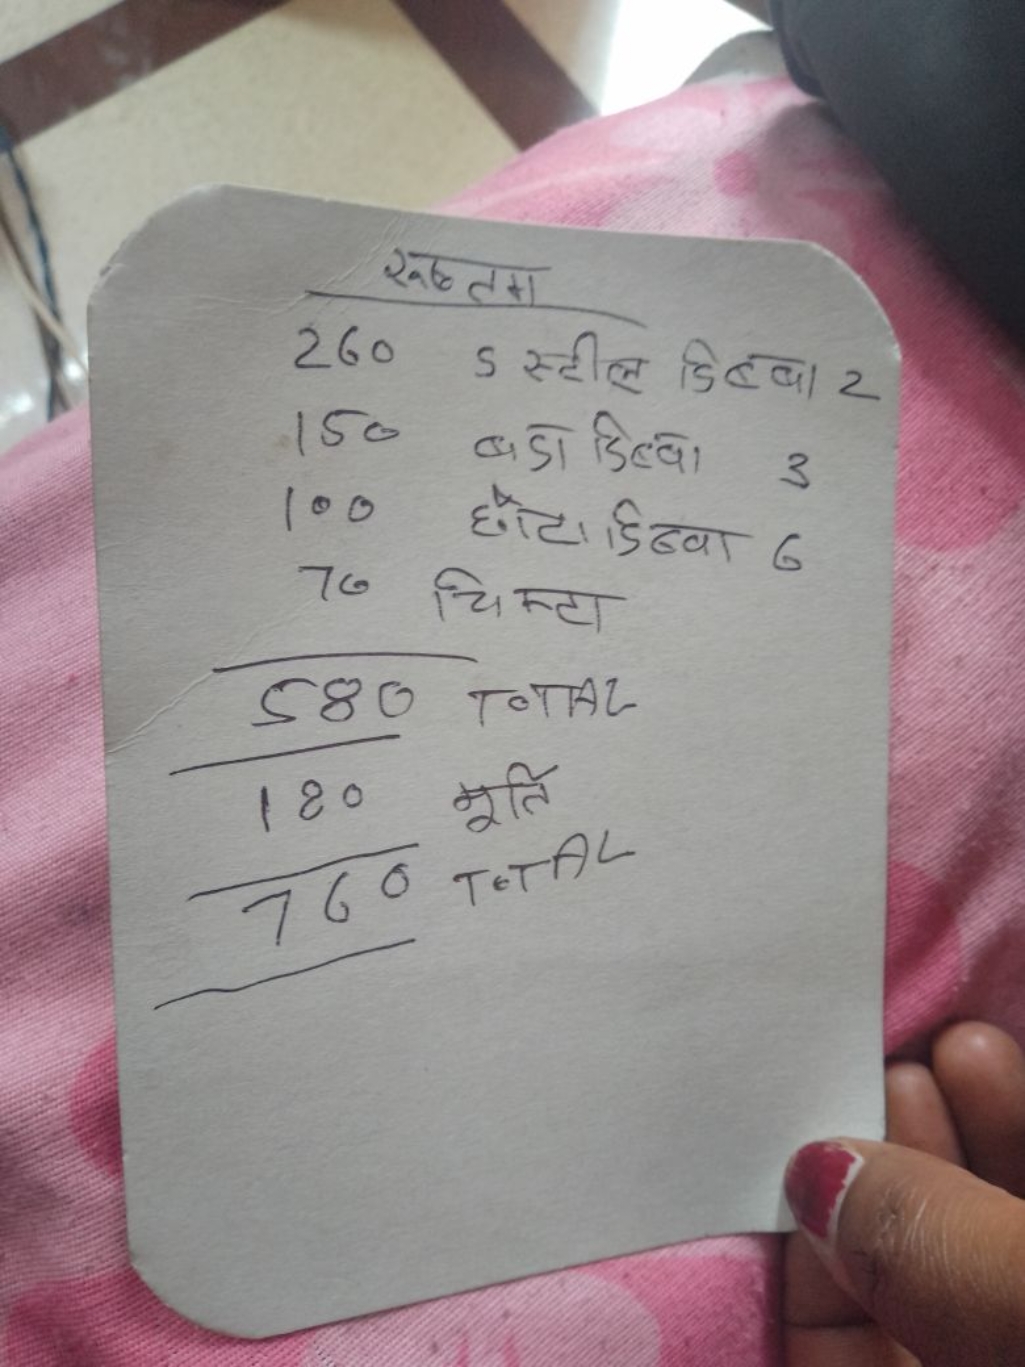 रूष्तम
260 5 स्टील डिब्बा 2
150 बडा डिब्बा 3
100 छोटा डिब्बा 6
70 चिमटा
580 TOTAL
180 मूर्ति
760 TOTAL